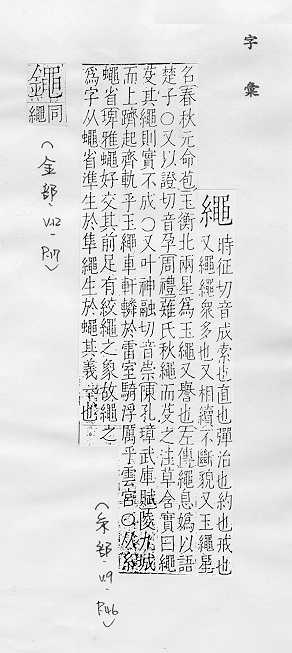 字彙
繩
時征切音成索也直也彈治也約也戒也
又繩繩衆多也又相續不斷貌又玉繩星
名春秋元命苞玉衡北兩星爲玉繩又譽也左傳繩息嬀以語
楚子○又以證切音孕周禮薙氏秋繩而芟之注草含實曰繩
芟其繩則實不成○又叶神融切音崇陳孔璋武庫賦陵九城
而上躋起齊軌乎玉繩車軒轔於雷室騎浮厲乎雲宮○从糸
蠅省埤雅蠅好交其前足有絞繩之象故繩之
爲字从蠅省準生於隼繩生於蠅其義一也
(糸部·V.9·P.46)
鐗同
繩
(金部·V.12·P.17)